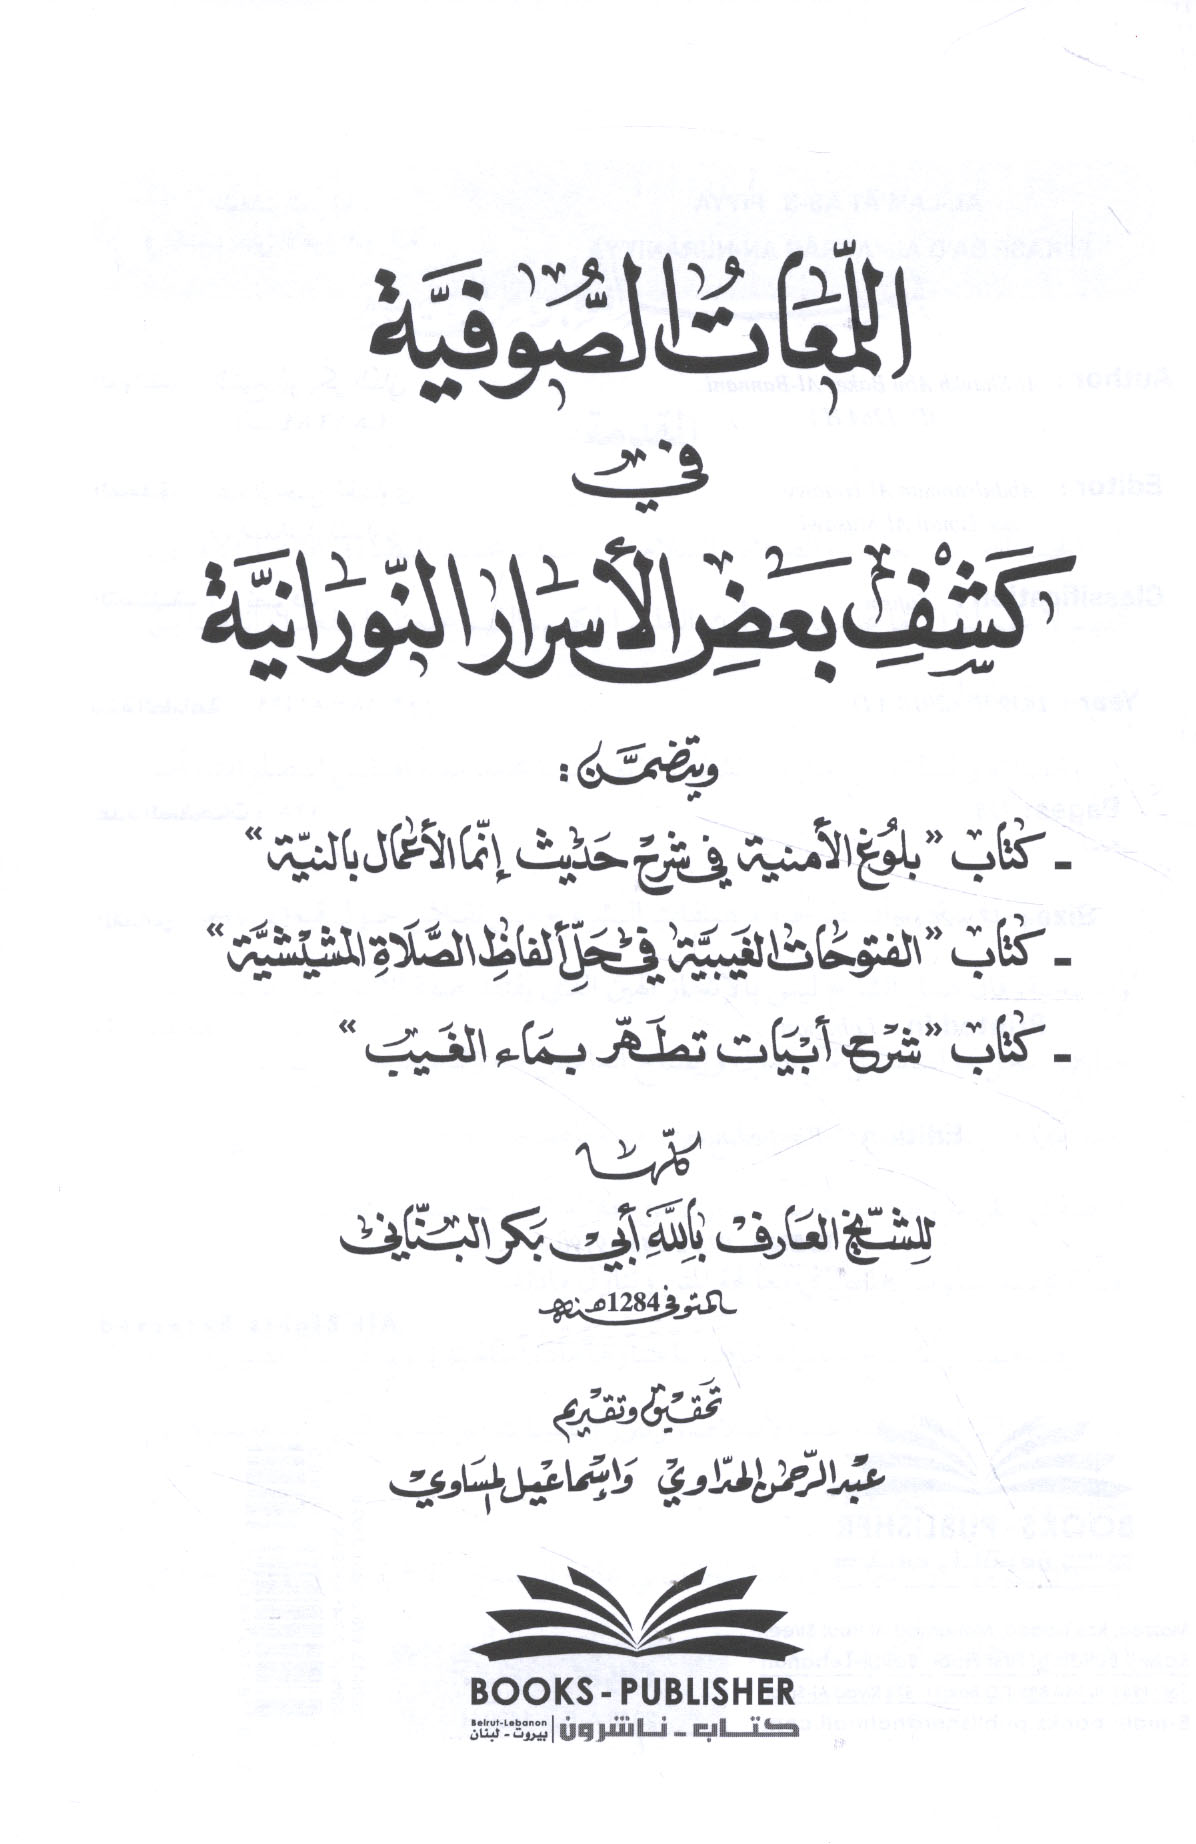 اللَّمَعَاتُ الصُّوفِيَّة
في
كَشْفِ بَعْضِ الأَسْرَارِ النّورَانِيَّة
ويتضمَّن :
ـ كتَاب "بلُوغ الأمنية في شرح حَدِيث إنّما الأعمَال بالنيّة"
ـ كتَاب "الفتوحَات الغَيبيَّة في حَلِّ ألفاظِ الصَّلَاةِ المشيْشيَّة"
ـ كتَاب "شرح أبْيَات تطَهّر بمَاء الغَيب"
كلّها
لِلشّيخ العَارف بالله أبي بَكر البنّاني
المتوفى 1284 هـ سنة
تحقيق وتقديم
عبْد الرّحمن الهدّاوي وَإسْماعيل المساوي
BOOKS - PUBLISHER
كتاب - ناشرون
Beirut-Lebanon
بيروت - لبنان